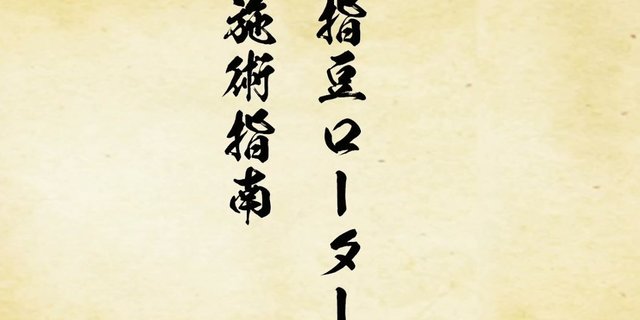 指豆ローター
施術指南